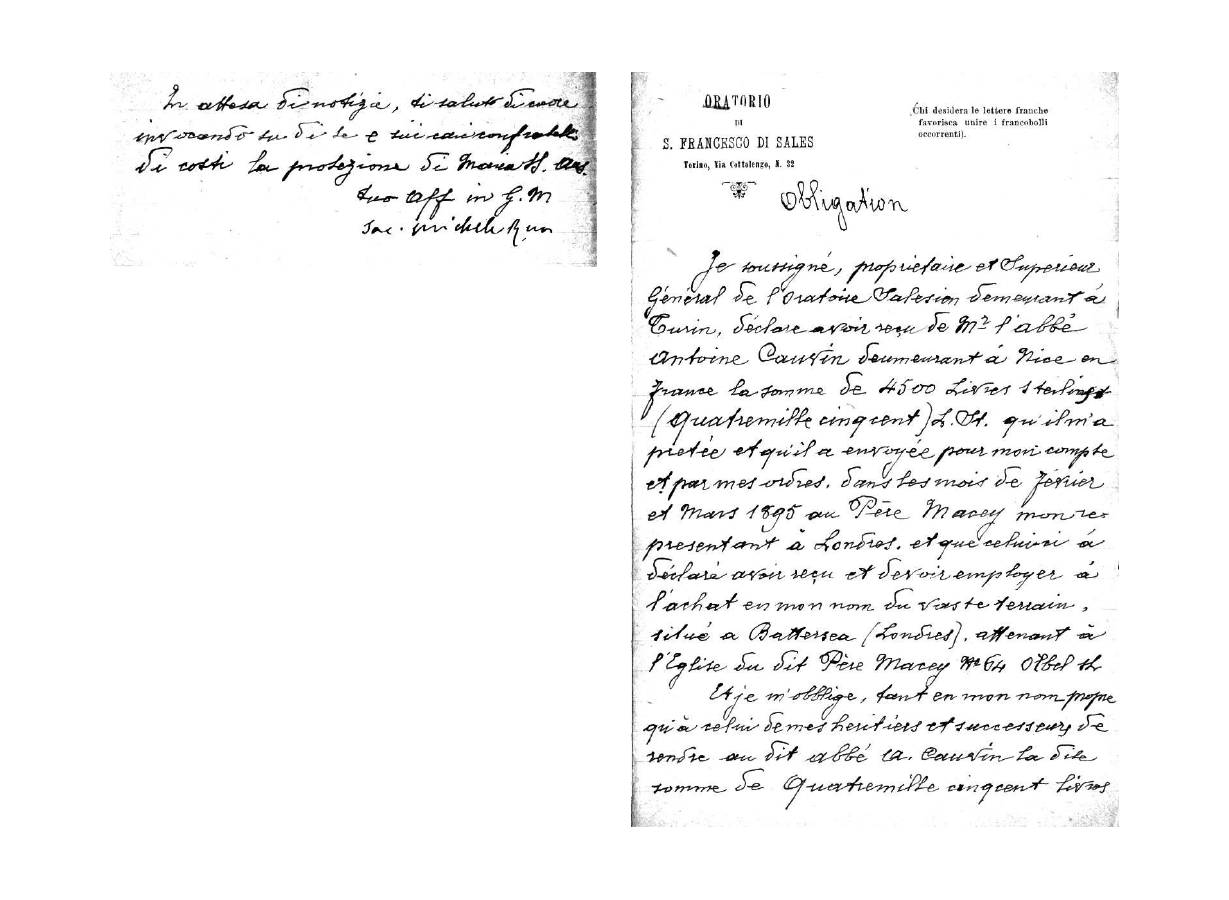 In attesa di notizie, ti saluto di cuore
invocando su di te e sui cari confratelli
di costì la protezione di Maria SS. Aus.
tuo aff in G. M
Sac. Michele Rua
ORATORIO
DI
S. FRANCESCO DI SALES
Torino, Via Cottolengo, N. 32
(Chi desidera le lettere franche
favorisca unire i francobolli
occorrenti).
Obligation
Je soussigné, proprietaire et Superieur
Général de l'Oratoire Salesien demeurant à
Turin, déclare avoir reçu de Mr l'abbé
Antoine Cauvin deumeurant à Nice en
France la somme de 4500 Livres Sterlings
(Quatremille cinqcent) L. St. qu'il m'a
pretée et qu'il a envoyée pour mon compte
et par mes ordres. dans les mois de Février
et Mars 1895 au Père Macey mon re-
presentant à Londres. et que celui-ci à
déclaré avoir reçu et devoir employer à
l'achat en mon nom du vaste terrain,
situé a Battersea (Londres). attenant à
l'Eglise du dit Père Macey No 64 Olbel
Et je m'obblige, tant en mon nom propre
qu'à celui de mes heritiers et successeurs de
rendre au dit abbé A. Cauvin la dite
somme de Quatremille cinqcent livres